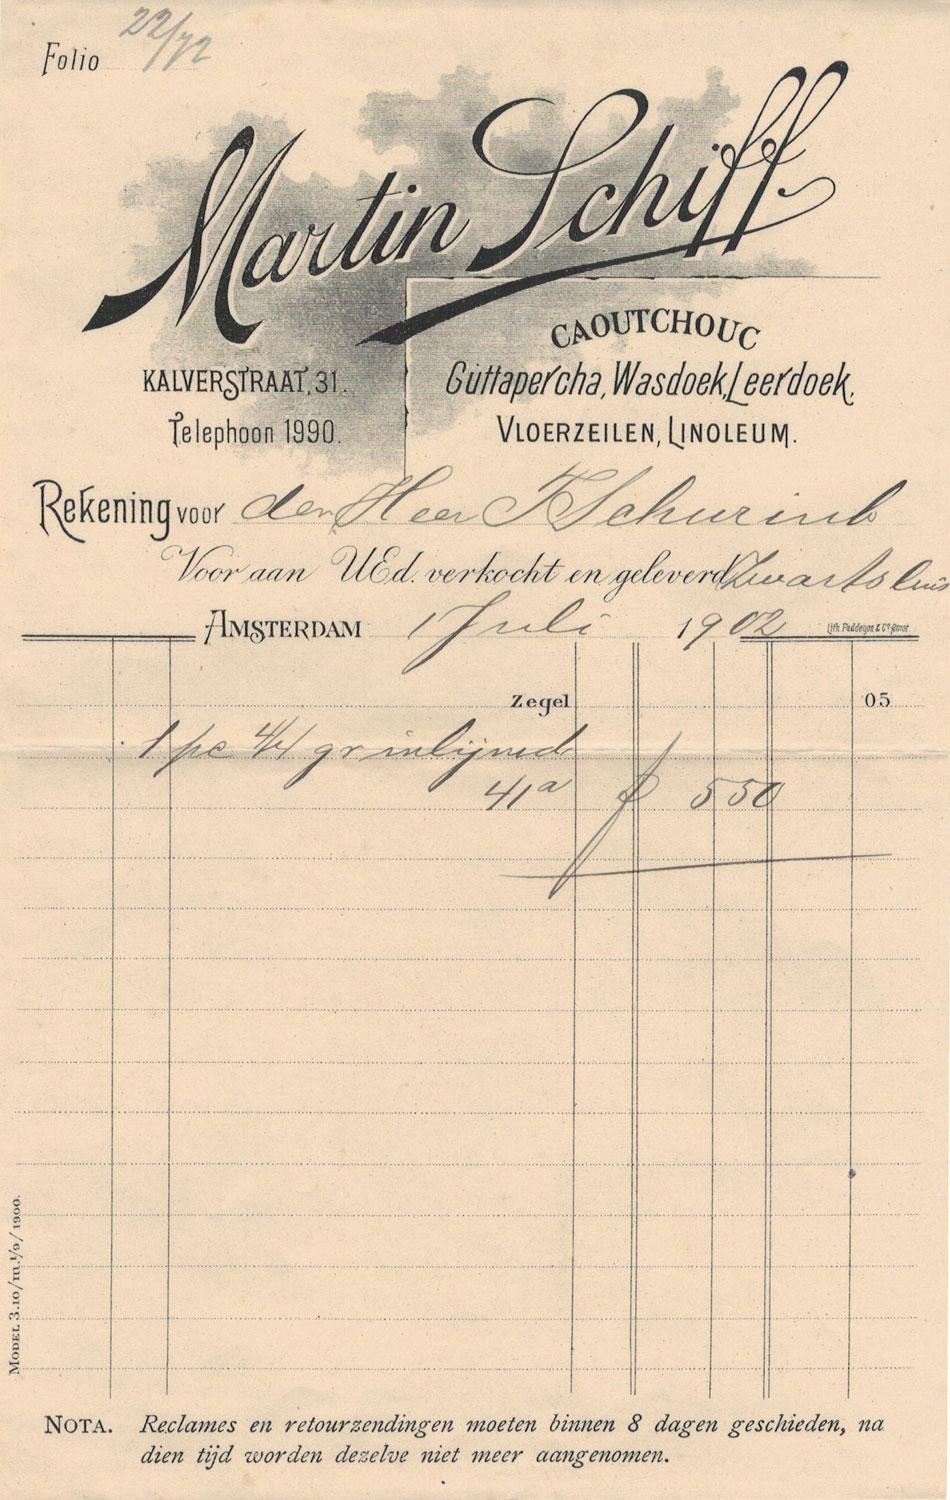 Folio 22/72
Martin Schiff.
CAOUTCHOUC
KALVERSTRAAT, 31.
Guttapercha, Wasdoek, Leerdoek,
Telephoon 1990.
VLOERZEILEN, LINOLEUM.
Rekening voor den Heer F Schurink
Voor aan UEd. verkocht en geleverd Zwartsluis
AMSTERDAM 1 Juli 1902
Lith. Faddegon & Co Amst.
Zegel 05
1 pc 4/4 gr inlijned
41a f 5 50
MODEL 3.10/m.1/9/1900.
NOTA. Reclames en retourzendingen moeten binnen 8 dagen geschieden, na
dien tijd worden dezelve niet meer aangenomen.